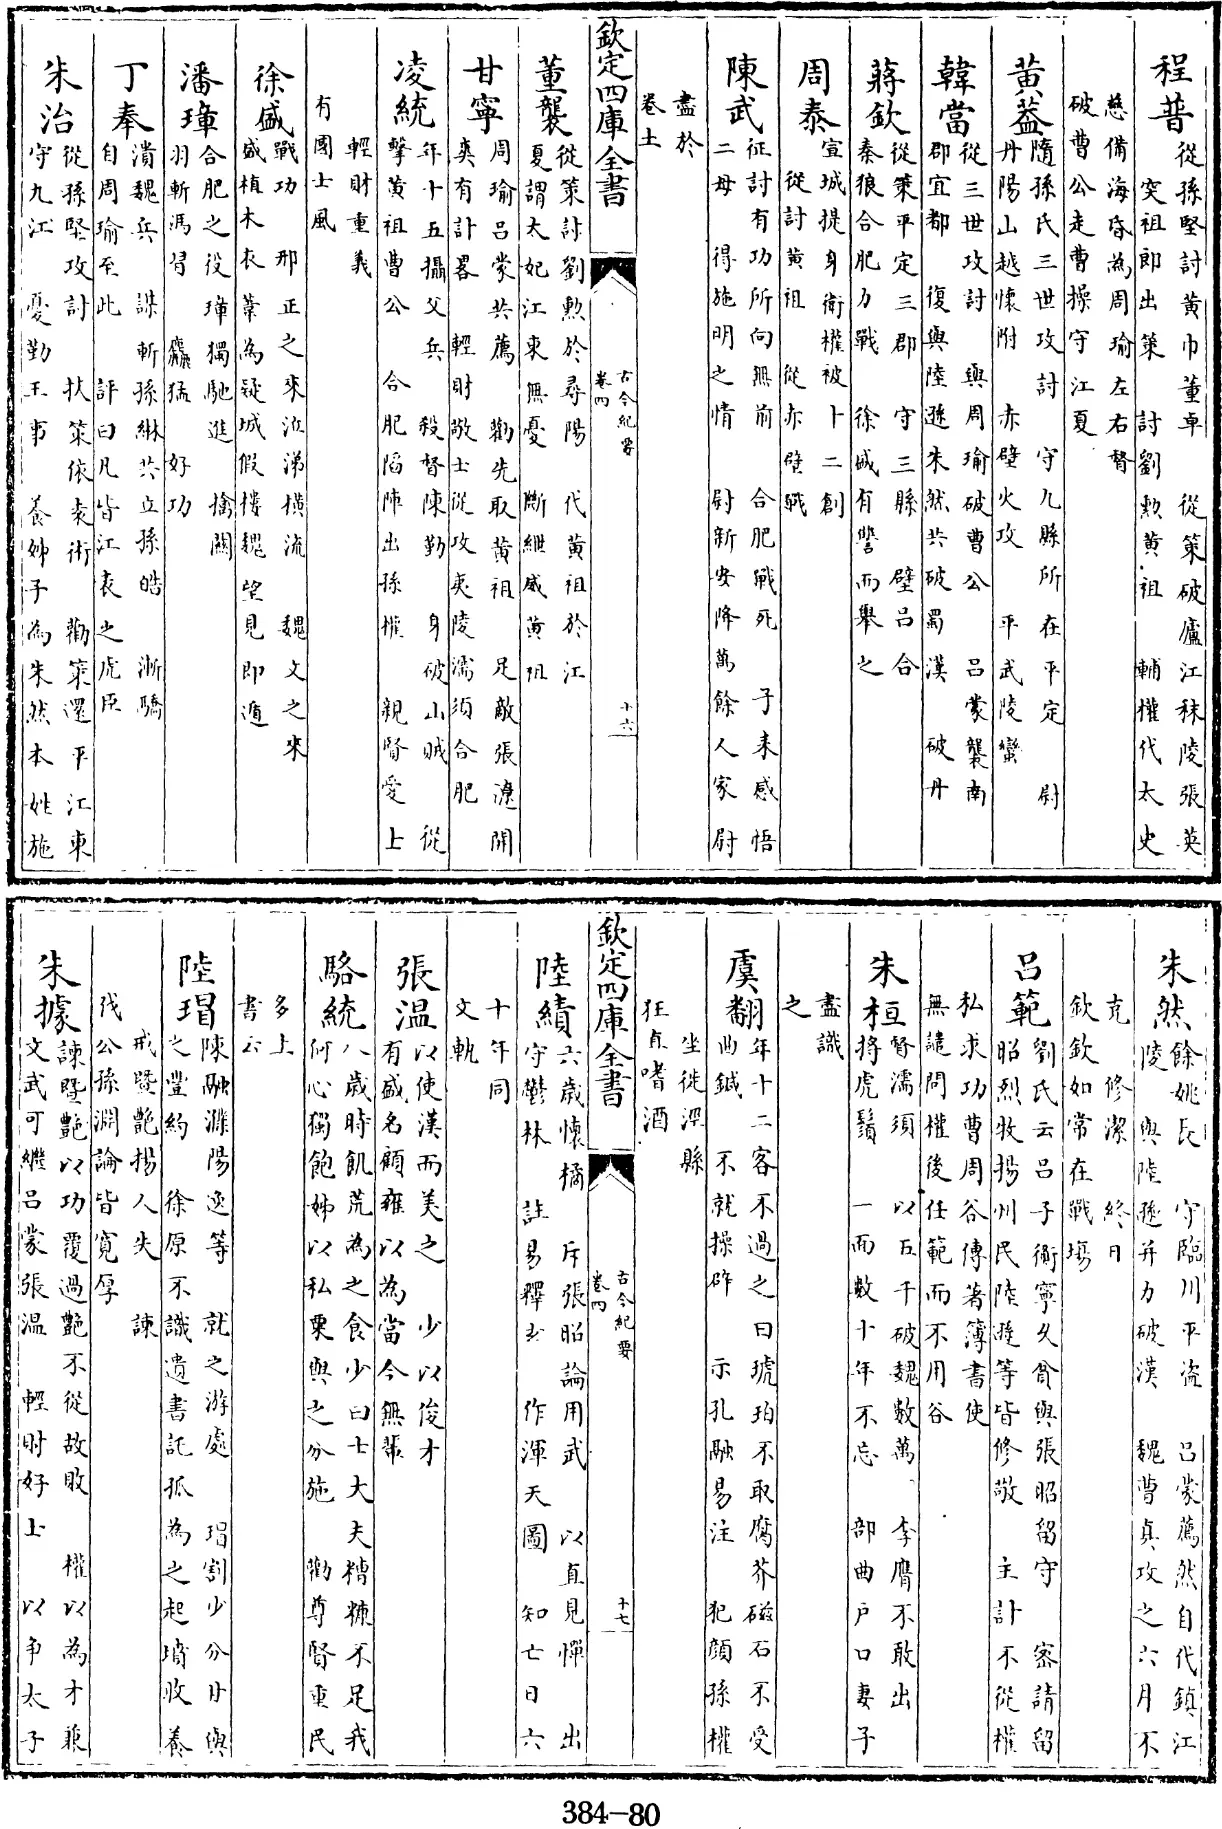 程普 從孫堅討黃巾董卓 從策破廬江秣陵張英
突祖郎出策 討劉勲黄祖 輔權代太史
慈備海昏為周瑜左右督
破曹公走曹操守江夏
黄蓋 隨孫氏三世攻討 守九縣所在平定 尉
丹陽山越懷附 赤壁火攻 平武陵蠻
韓當 從三世攻討 與周瑜破曹公 吕蒙襲南
郡宜都 復與陸遜朱然共破蜀漢 破丹
蔣欽 從策平定三郡 守三縣 壁吕合
秦狼合肥力戰 徐盛有讐而舉之
周泰 宣城提身衛權被十二創
從討黄祖 從赤壁戰
陳武 征討有功所向無前 合肥戰死 子表感悟
二母 得施明之情 尉新安降萬餘人家尉
盡於
卷土
欽定四庫全書
古今紀要
卷四
十六
董襲 從策討劉勲於尋陽 代黄祖於江
夏謂太妃江東無憂 斷紲威黄祖
甘寧 周瑜吕蒙共薦 勸先取黄祖 足敵張遼開
爽有計畧 輕財敬士從攻夷陵濡須合肥
凌統 年十五攝父兵 殺督陳勤 身破山賊 從
擊黄祖曹公 合肥陷陣出孫權 親賢愛士
輕財重義
有國士風
徐盛 戰功 邢正之來泣涕横流 魏文之來
盛植木衣葦為疑城假樓魏望見即遁
潘璋 合肥之役璋獨馳進 擒關
羽斬馮習 麤猛好功
丁奉 潰魏兵 誅斬孫綝共立孫皓 漸驕
自周瑜至此 評曰凡皆江表之虎臣
朱治 從孫堅攻討 扶策依袁術 勸策還平江東
守九江 憂勤王事 養姉子為朱然本姓施
朱然 餘姚長 守臨川平盗 吕蒙薦然自代鎮江
陵 與陸遜并力破漢 魏曹真攻之六月不
克 修潔 終日
欽欽如常在戰場
吕範 劉氏云吕子衡寧久貧與張昭留守 密請留
昭烈牧揚州民陸遜等皆修敬 主計不從權
私求功曹周谷傳著簿書使
無譴問權後任範而不用谷
朱桓 督濡須 以五千破魏數萬 李膺不敢出
捋虎鬚 一面數十年不忘 部曲户口妻子
盡識
之
虞翻 年十二客不過之曰琥珀不取腐芥磁石不受
曲鍼 不就操辟 示孔融易注 犯顔孫權
坐徙涇縣
狂直嗜酒
欽定四庫全書
古今紀要
卷四
十七
陸績 六歲懷橘 斥張昭論用武 以直見憚 出
守鬱林 註易釋玄 作渾天圖 知亡日六
十年同
文軌
張温 以使漢而美之 少以俊才
有盛名顧雍以為當今無輩
駱統 八歲時飢荒為之食少曰士大夫糟糠不足我
何心獨飽姊以私粟與之分施 勸尊賢重民
多上
書云
陸瑁 陳融濮陽逸等 就之游處 瑁割少分甘與
之豐約 徐原不識遺書託孤為之起墳收養
戒暨艷揚人失 諫
伐公孫淵論皆寛厚
朱據 諫暨艷以功覆過艷不從故敗 權以為才兼
文武可繼吕蒙張温 輕財好士 以争太子
384-80